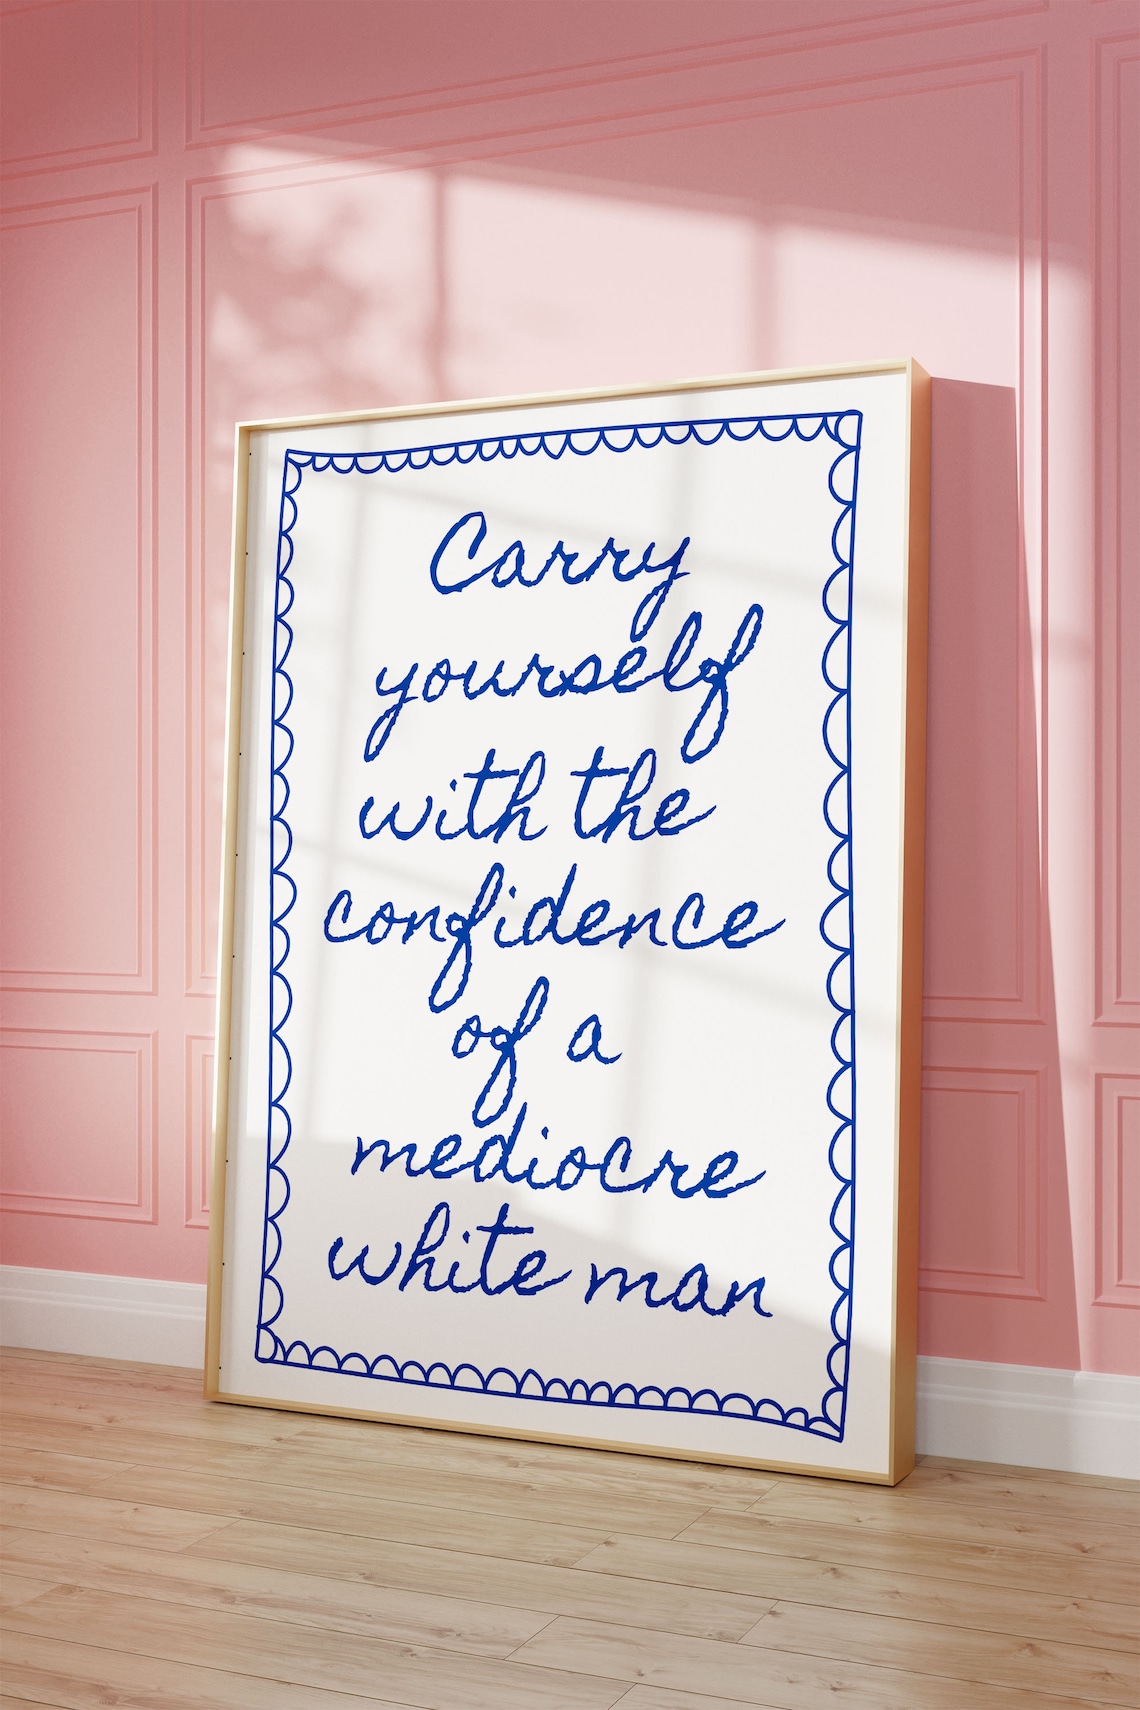 Carry
yourself
with the
confidence
of a
mediocre
white man